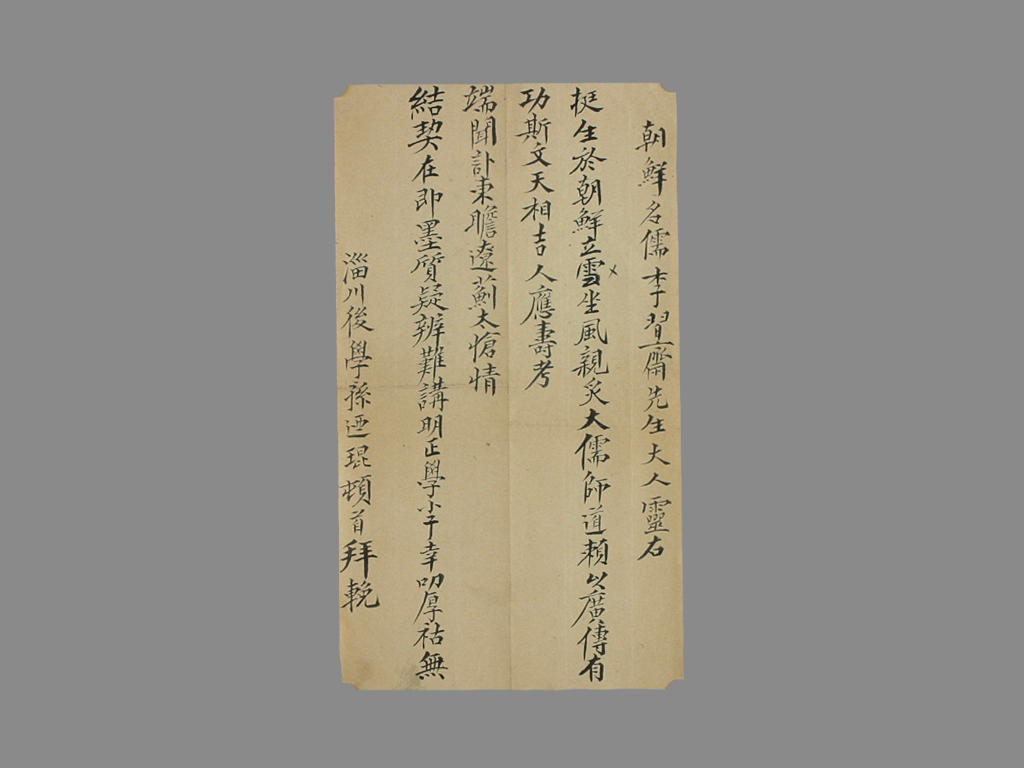 朝鮮名儒李習齋先生大人靈右
挺生於朝鮮立雪坐風親炙大儒師道賴以廣傳有
功斯文天相吉人應壽考
端聞訃東瞻遼薊太愴情
結契在即墨質疑辨難講明正學小子幸叨厚祜無
淄川後學孫迺琨頓首拜輓